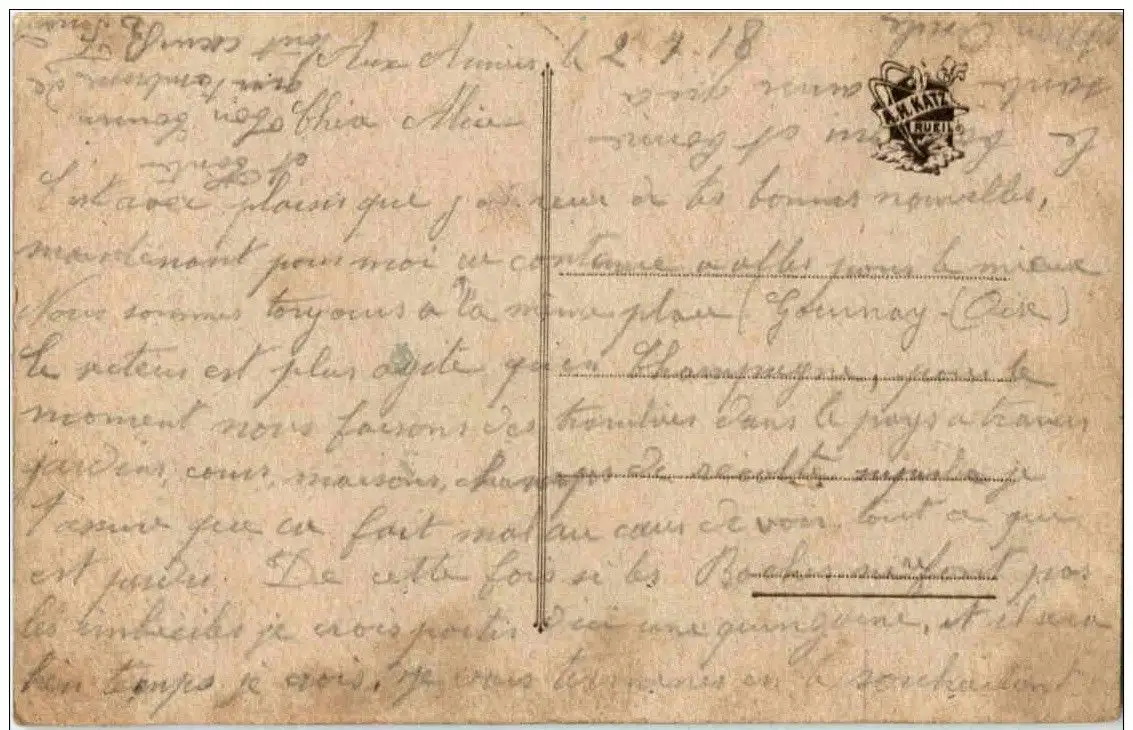 Aux Armées le 2.7.18
Chère Alice
C'est avec plaisir que j'ai reçu de tes bonnes nouvelles,
maintenant pour moi ça continue a aller pour le mieux
Nous sommes toujours a la même place (Gournay-(Oise)
le secteur est plus agité qu'en Champagne, pour le
moment nous faisons des tranchées dans le pays a travers
jardins, cours, maisons, champs de récolte je
t'assure que ça fait mal au cœur de voir tout ce qui
est perdu. De cette fois si les Boches ne font pas
les imbéciles je crois partir d'ici une quinzaine, et il sera
bien temps je crois, je vais terminer en te souhaitant
le bonjour et bonne
santé ainsi qu'a
Emile
et toute
A.H. KATZ
RUEIL